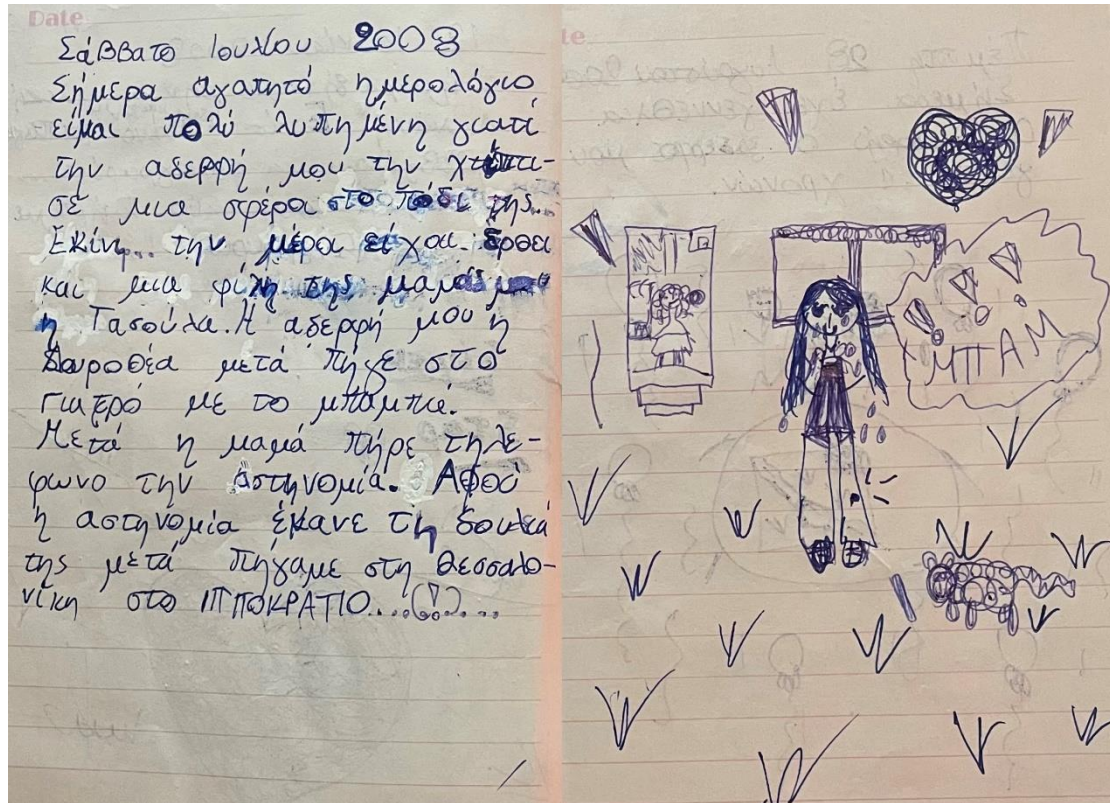 Date
Σάββατο Ιουλίου 2008
Σήμερα αγαπητό ημερολόγιο
είμαι πολύ λυπημένη γιατί
την αδερφή μου την χτύπι-
σε μια σφέρα στο πόδι της..
Εκίνη... την μέρα είχαι έρθει
και μια φίλη της μαμάς μου
η Τασούλα. Η αδερφή μου η
Δωροθέα μετά πήγε στο
γιατρό με το μπαμπά.
Μετά η μαμά πήρε τηλέ-
φωνο την αστηνομία. Αφού
η αστηνόμία έκανε τη δουλειά
της μετά πήγαμε στη Θεσσαλο-
νίκη στο ΙΠΠΟΚΡΑΤΙΟ....(!)....
ΜΠΑΜ